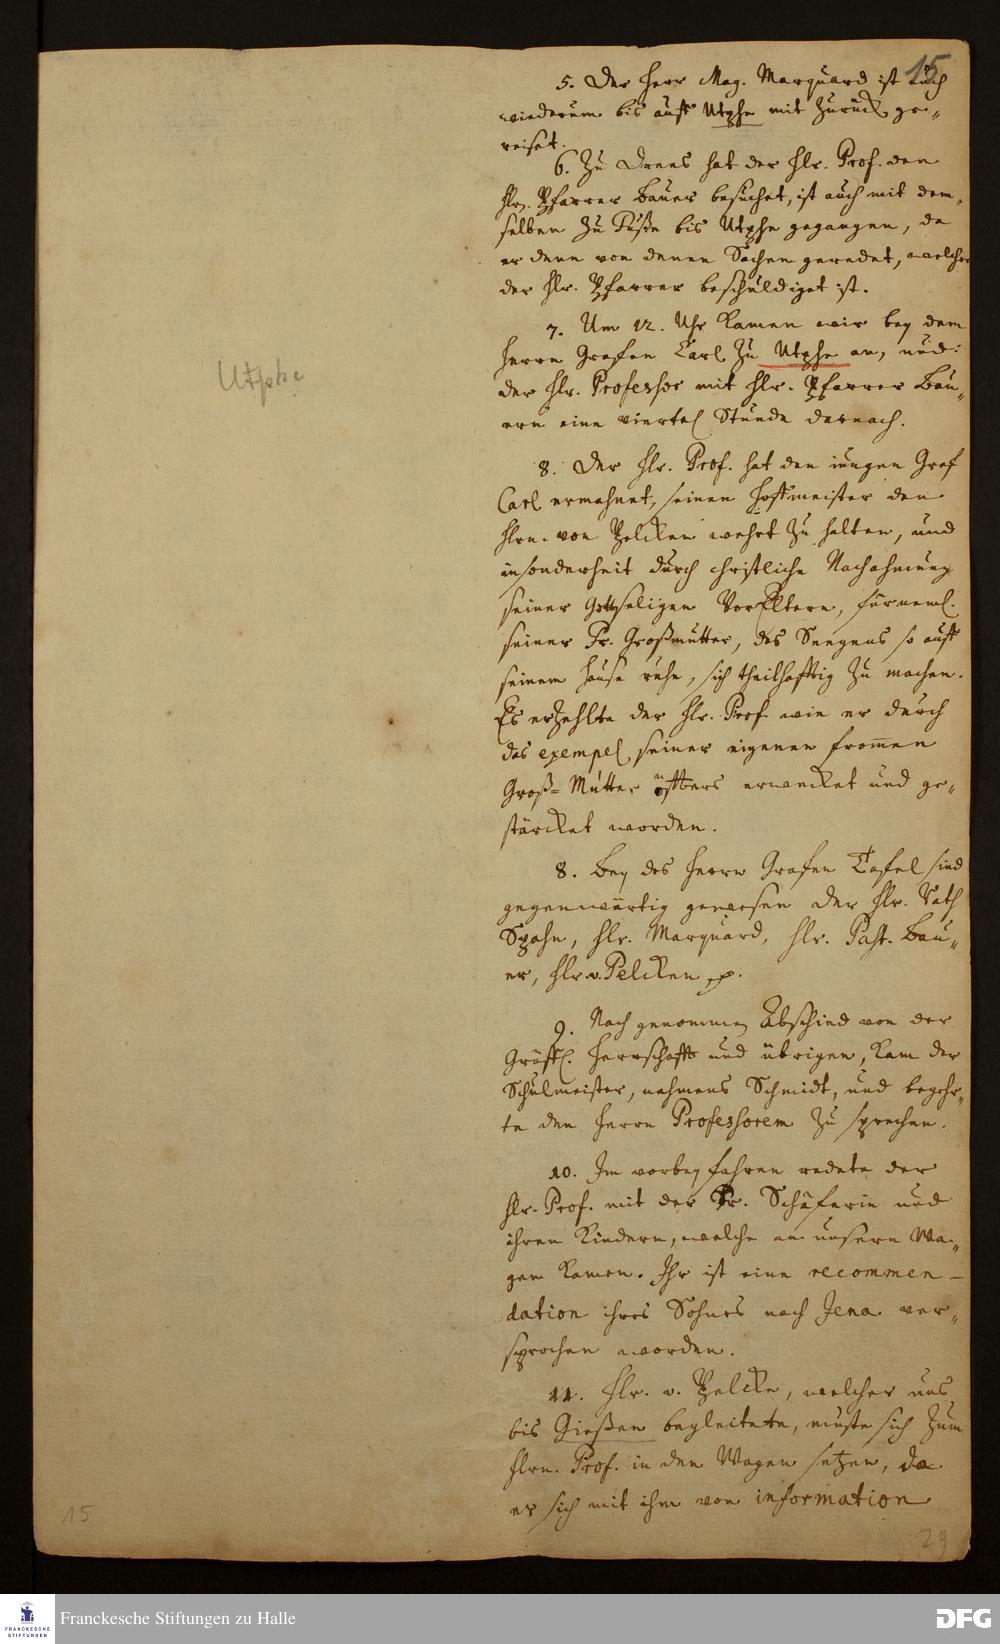 15
5. Der Herr Mag. Marquard ist auch
wiederum bis auff Utphe mit zurück ge„
reiset.
6. Zu Trees hat der Hr. Prof. den
Hrn. Pfarrer Bauer besuchet, ist auch mit dem„
selben zu Fuße bis Utphe gegangen, da
er denn von denen Sachen geredet, welcher
der Hr. Pfarrer beschuldiget ist.
7. Um 12. Uhr kamen wir bey dem
Herrn Grafen Carl zu Utphe an, und
der Hr. Professor mit Hr. Pfarrer Bau„
ern eine viertel Stunde darnach.
Utphe
8. Der Hr. Prof. hat den jungen Graf
Carl ermahnet, seinen Hoffmeister den
Hrn. von Pelcken wehrt zu halten, und
insonderheit durch christliche Nachahmung
seiner Gottseligen VorEltern, fürneml.
seiner Fr. Großmutter, des Seegens so auff
seinem Hause ruhe, sich theilhafftig zu machen.
Es erzehlte der Hr. Prof. wie er durch
das exempel seiner eigenen from̅en
Groß-Mutter öffters erwecket und ge„
stärcket worden.
8. Bey des Herrn Grafen Tafel sind
gegenwärtig gewesen der Hr. Rath
Spahn, Hr. Marquard, Hr. Past. Bau„
er, Hr. v. Pelcken p.
9. Nach genommen Abschied von der
Gräffl. Herrschafft und übrigen, kam der
Schulmeister, nahmens Schmidt, und begehr„
te den Herrn Professorem zu sprechen.
10. Im vorbey fahren redete der
Hr. Prof. mit der Fr. Schäferin und
ihren Kindern, welche an unsern Wa„
gen kamen. Ihr ist eine recommen-
dation ihres Sohnes nach Jena ver„
sprochen worden.
11. Hr. v. Pelcke, welcher uns
bis Gießen begleitete, muste sich zum
Hrn. Prof. in den Wagen setzen, da
er sich mit ihm von information
15
29
Franckesche Stiftungen zu Halle
FRANCKESCHE
STIFTUNGEN
DFG